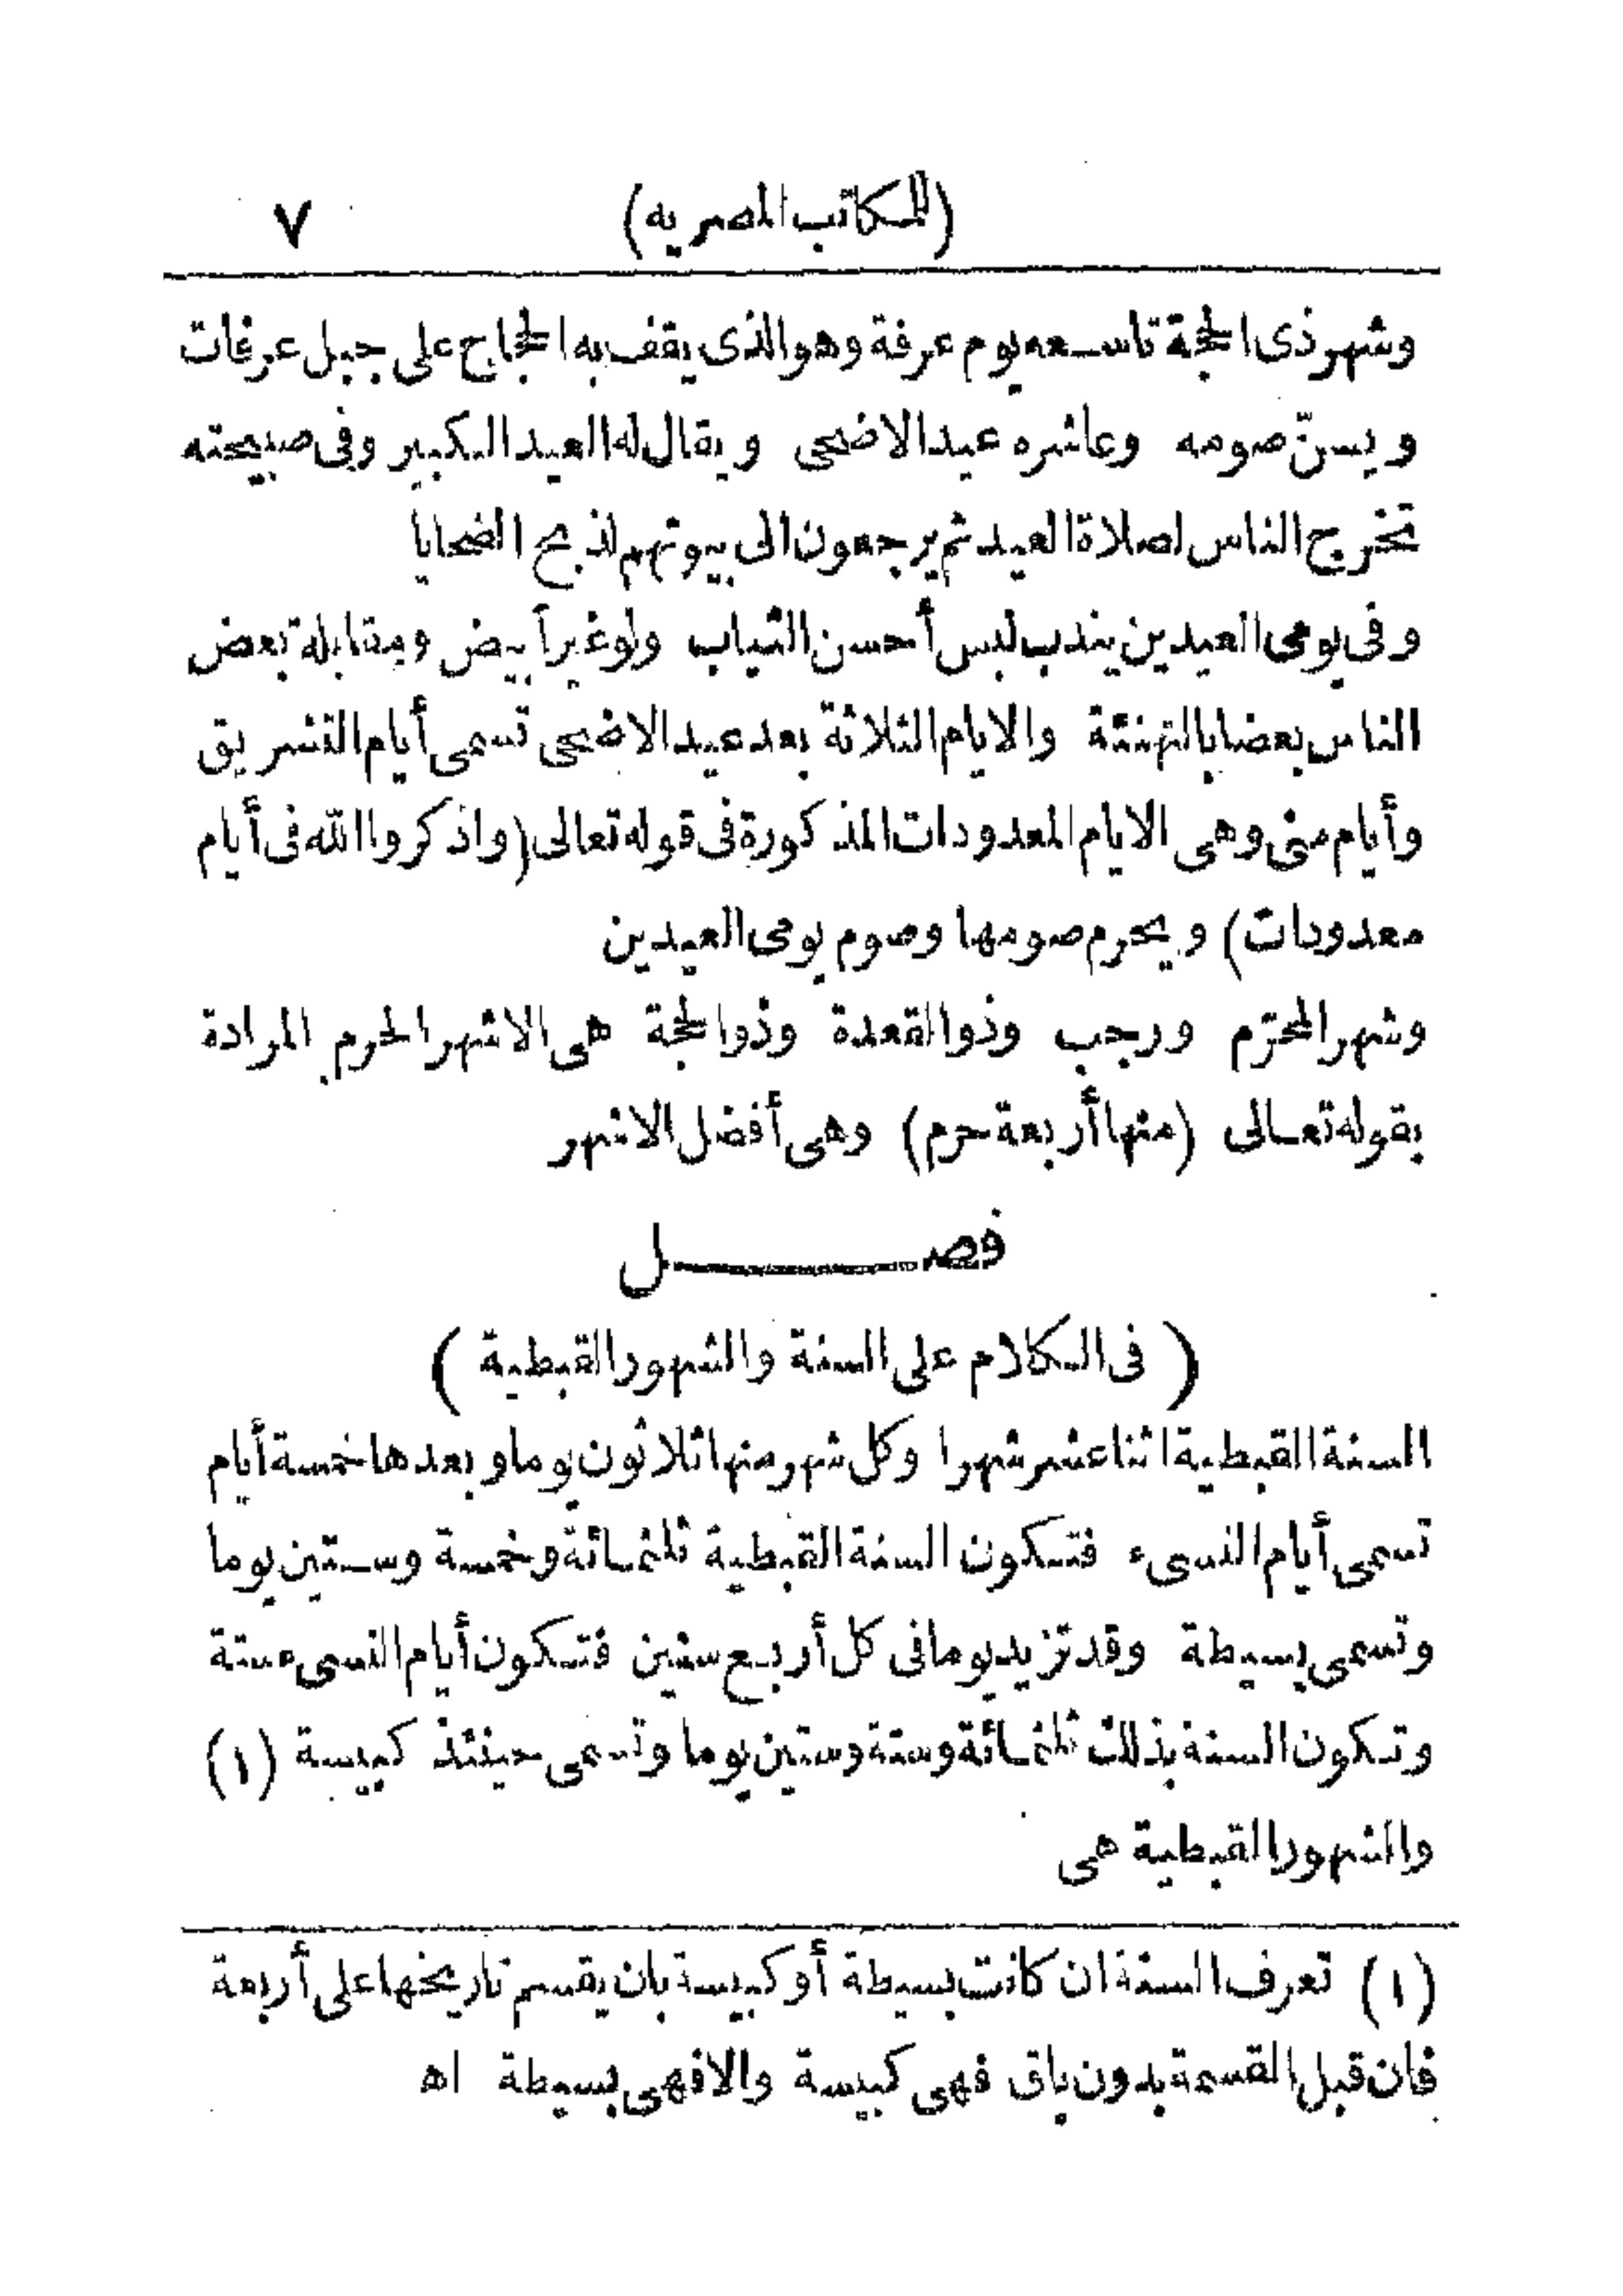 (للمكاتب المصريه) ٧
وشهر ذى الحجة تاسعه يوم عرفة وهو الذى يقف به الحجاج على جبل عرفات
ويسنّ صومه وعاشره عيد الاضحى ويقال له العيد الكبير وفى صبيحته
تخرج الناس لصلاة العيد ثم يرجعون الى بيوتهم لذبح الضحايا
وفى يومى العيدين يندب لبس أحسن الثياب ولو غير أبيض ومقابلة بعض
الناس بعضا بالتهنئة والايام الثلاثة بعد عيد الاضحى تسمى أيام التشريق
وأيام منى وهى الايام المعدودات المذكورة فى قوله تعالى (واذكروا الله فى أيام
معدودات) ويحرم صومها وصوم يومى العيدين
وشهر المحرّم ورجب وذو القعدة وذو الحجة هى الاشهر الحرم المرادة
بقوله تعالى (منها أربعة حرم) وهى أفضل الاشهر
فصـــــــل
( فى الكلام على السنة والشهور القبطية )
السنة القبطية اثنا عشر شهرا وكل شهر منها ثلاثون يوما وبعدها خمسة أيام
تسمى أيام النسىء فتكون السنة القبطية ثلثمائة وخمسة وستين يوما
وتسمى بسيطة وقد تزيد يوما فى كل أربع سنين فتكون أيام النسىء ستة
وتكون السنة بذلك ثلثمائة وستة وستين يوما وتسمى حينئذ كبيسة (١)
والشهور القبطية هى
(١) تعرف السنة ان كانت بسيطة أو كبيسة بان يقسم تاريخها على أربعة
فان قبل القسمة بدون باق فهى كبيسة والا فهى بسيطة اه